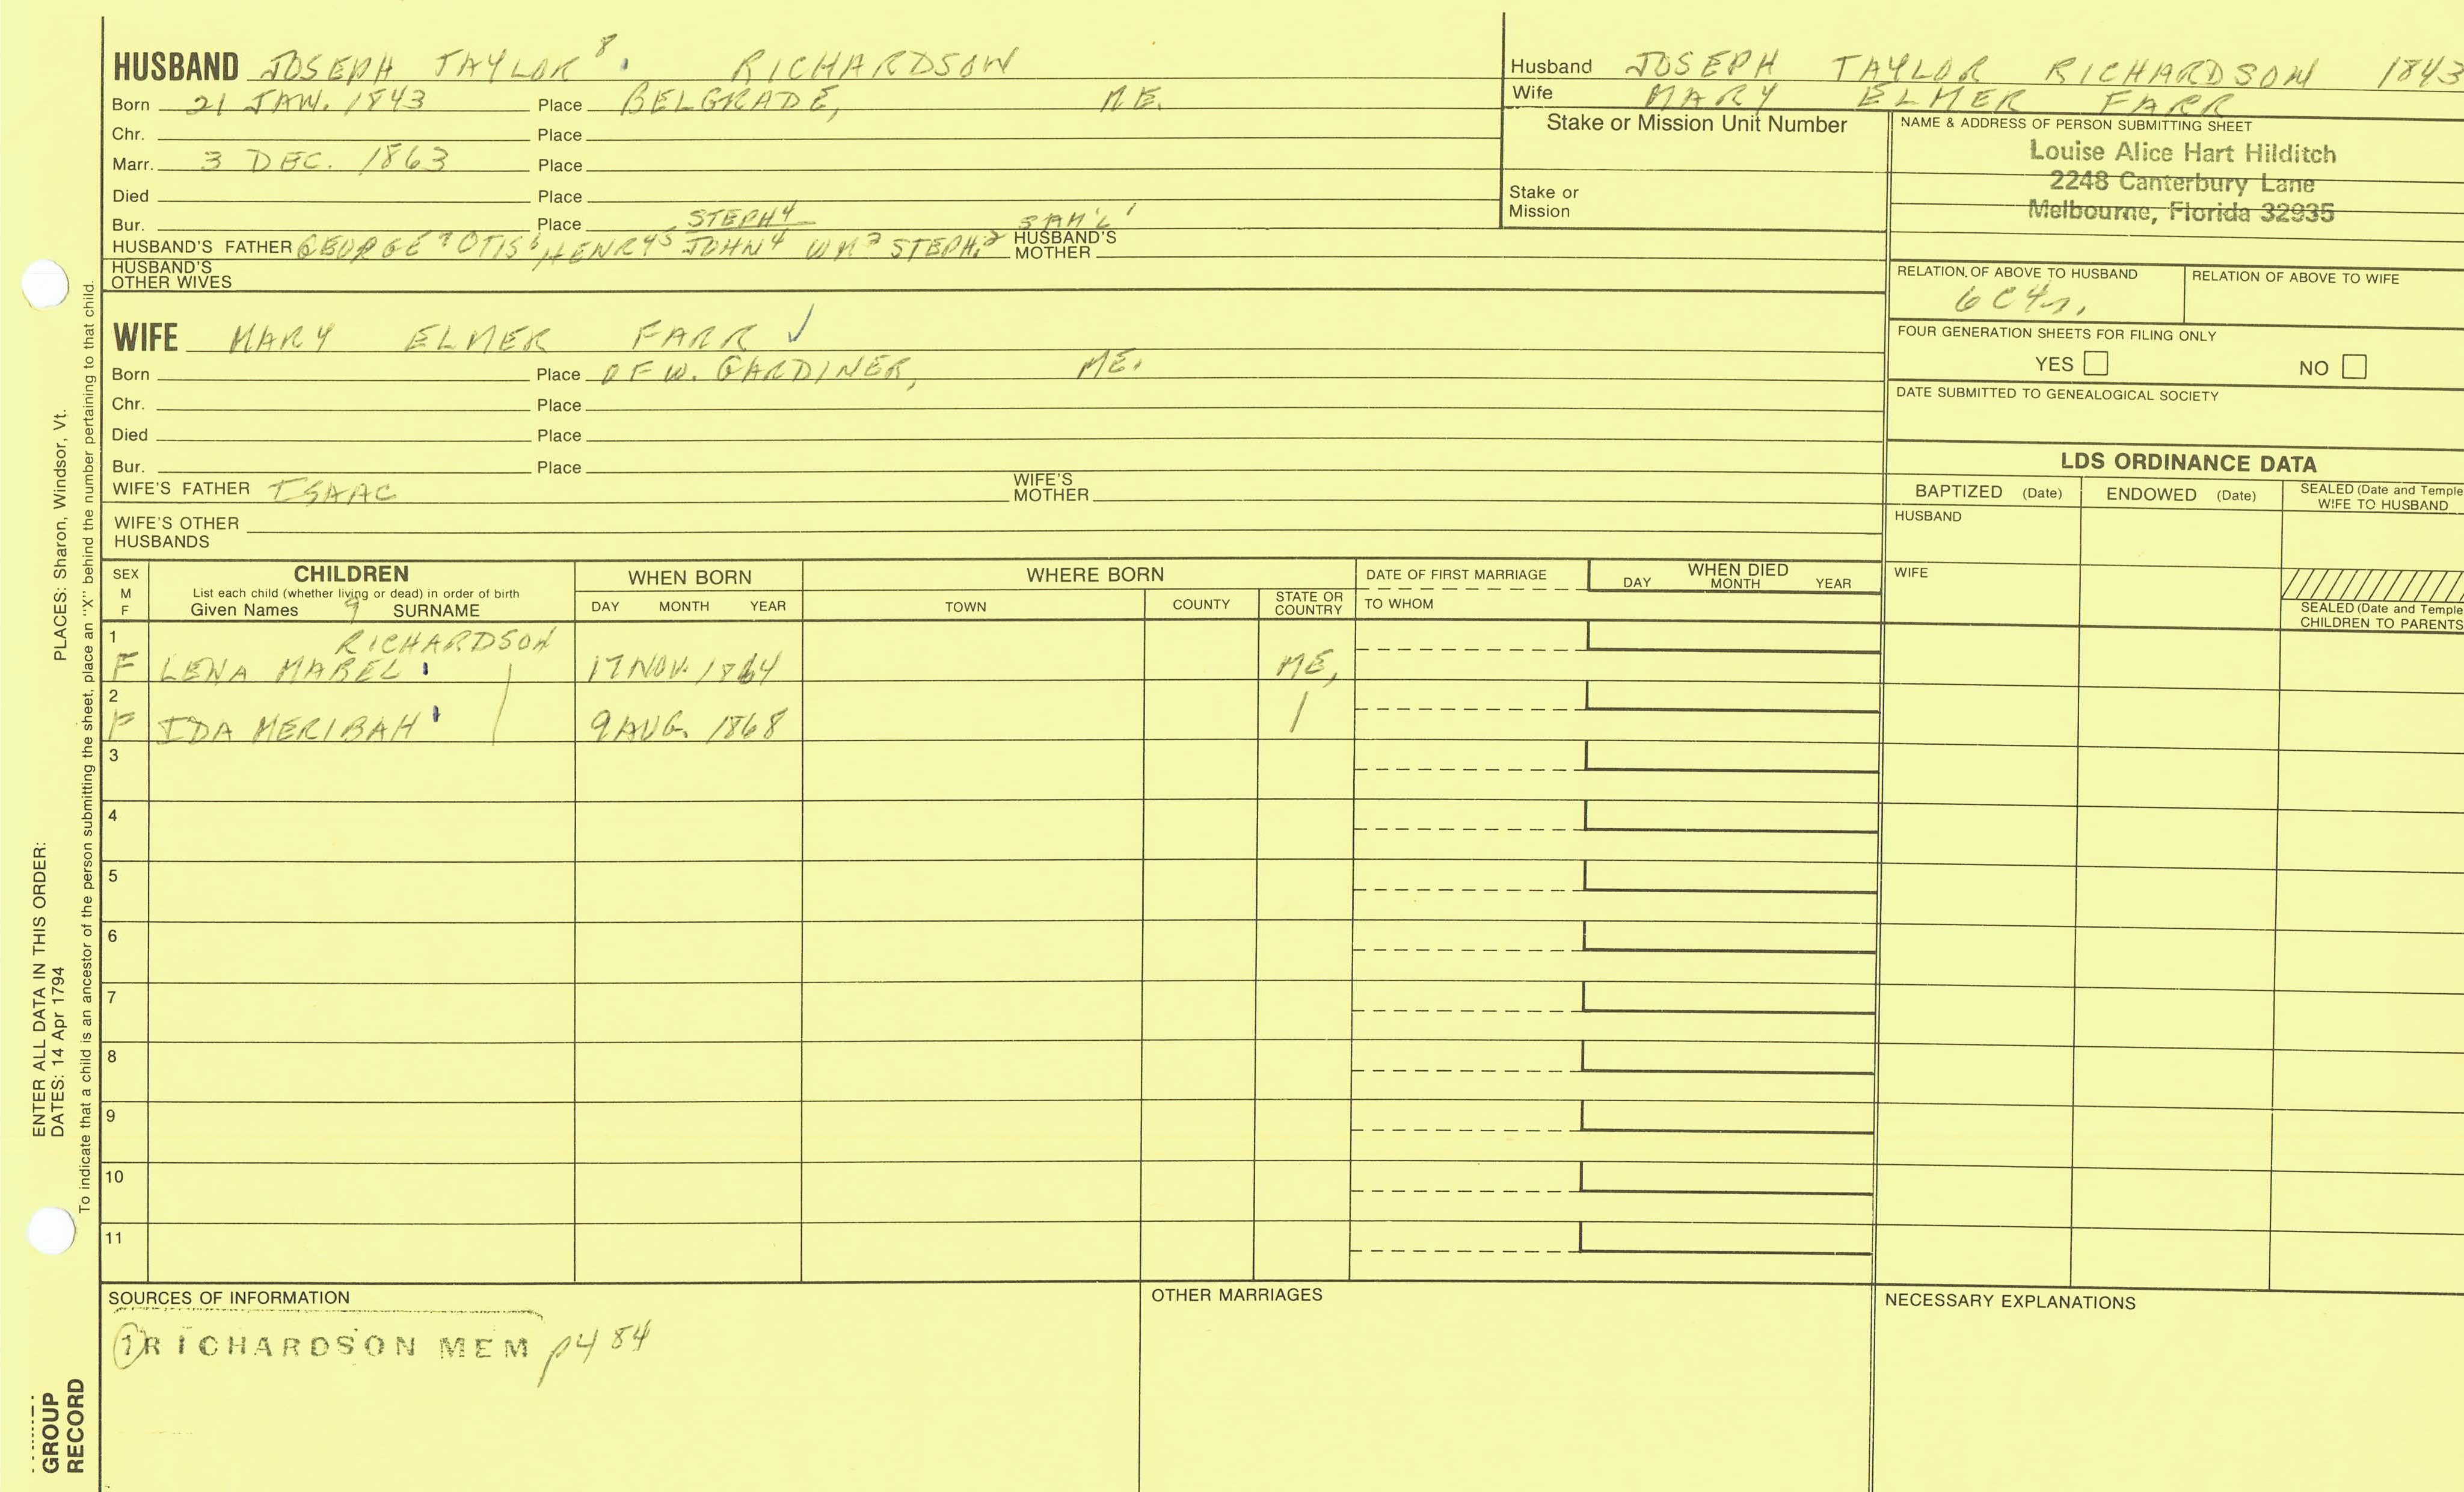 HUSBAND JOSEPH TAYLOR 8. RICHARDSON
Born 21 JAN. 1843 Place BELGRADE, ME.
Chr. Place
Marr. 3 DEC. 1863 Place
Died Place
Bur. Place STEPH4 SAM'L1
HUSBAND'S FATHER GEORGE7 OTIS6 HENRY5 JOHN4 WM3 STEPH.2 HUSBAND'S MOTHER
HUSBAND'S OTHER WIVES
Husband JOSEPH TAYLOR RICHARDSON 1843
Wife MARY ELMER FARR
Stake or Mission Unit Number
Stake or Mission
NAME & ADDRESS OF PERSON SUBMITTING SHEET
Louise Alice Hart Hilditch
2248 Canterbury Lane
Melbourne, Florida 32935
RELATION OF ABOVE TO HUSBAND RELATION OF ABOVE TO WIFE
6C4r.
FOUR GENERATION SHEETS FOR FILING ONLY
YES NO
DATE SUBMITTED TO GENEALOGICAL SOCIETY
WIFE MARY ELMER FARR ✓
Born Place OF W. GARDINER, ME.
Chr. Place
Died Place
Bur. Place
WIFE'S FATHER ISAAC WIFE'S MOTHER
WIFE'S OTHER HUSBANDS
LDS ORDINANCE DATA
BAPTIZED (Date) ENDOWED (Date) SEALED (Date and Temple
WIFE TO HUSBAND
HUSBAND
WIFE
SEALED (Date and Temple
CHILDREN TO PARENTS
SEX
M
F
CHILDREN
List each child (whether living or dead) in order of birth
Given Names 9 SURNAME
WHEN BORN
DAY MONTH YEAR
WHERE BORN
TOWN COUNTY STATE OR COUNTRY
DATE OF FIRST MARRIAGE
TO WHOM
WHEN DIED
DAY MONTH YEAR
1 RICHARDSON
F LENA MABEL 17 NOV. 1864 ME,
2
F IDA MERIBAH 9 AUG. 1868 |
3
4
5
6
7
8
9
10
11
SOURCES OF INFORMATION
1 RICHARDSON MEM p484
OTHER MARRIAGES
NECESSARY EXPLANATIONS
ENTER ALL DATA IN THIS ORDER:
DATES: 14 Apr 1794 PLACES: Sharon, Windsor, Vt.
To indicate that a child is an ancestor of the person submitting the sheet, place an "X" behind the number pertaining to that child.
GROUP
RECORD